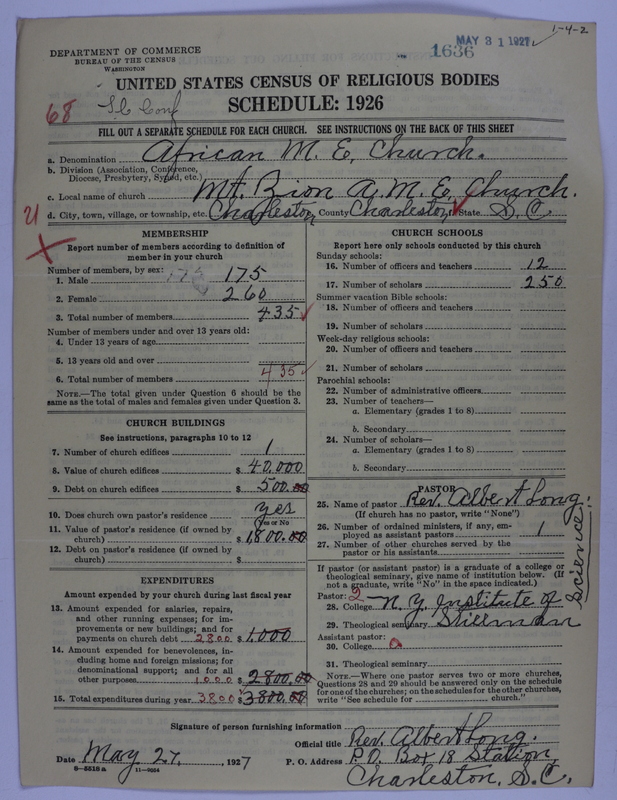 1-4-2
MAY 31 1927
1636
DEPARTMENT OF COMMERCE
BUREAU OF THE CENSUS
WASHINGTON
UNITED STATES CENSUS OF RELIGIOUS BODIES
68 S C Conf
SCHEDULE: 1926
FILL OUT A SEPARATE SCHEDULE FOR EACH CHURCH. SEE INSTRUCTIONS ON THE BACK OF THIS SHEET
a. Denomination African M. E. Church.
b. Division (Association, Conference, Diocese, Presbytery, Synod, etc.)
c. Local name of church Mt. Bion A. M. E. Church.
d. City, town, village, or township, etc. Charleston County Charleston State S. C
21
MEMBERSHIP
Report number of members according to definition of member in your church
Number of members, by sex: 175
1. Male 175
2. Female 260
3. Total number of members 435
Number of members under and over 13 years old:
4. Under 13 years of age
5. 13 years old and over
6. Total number of members 435
NOTE.—The total given under Question 6 should be the same as the total of males and females given under Question 3.
CHURCH BUILDINGS
See instructions, paragraphs 10 to 12
7. Number of church edifices 1
8. Value of church edifices $ 40,000
9. Debt on church edifices $ 500.00
10. Does church own pastor's residence yes
(Yes or No)
11. Value of pastor's residence (if owned by church) $ 1,800.00
12. Debt on pastor's residence (if owned by church) $
EXPENDITURES
Amount expended by your church during last fiscal year
13. Amount expended for salaries, repairs, and other running expenses; for improvements or new buildings; and for payments on church debt 2800 $ 1,000
14. Amount expended for benevolences, including home and foreign missions; for denominational support; and for all other purposes 1000 $ 2800.00
15. Total expenditures during year 3800 $ 3800.00
CHURCH SCHOOLS
Report here only schools conducted by this church
Sunday schools:
16. Number of officers and teachers 12
17. Number of scholars 250
Summer vacation Bible schools:
18. Number of officers and teachers
19. Number of scholars
Week-day religious schools:
20. Number of officers and teachers
21. Number of scholars
Parochial schools:
22. Number of administrative officers
23. Number of teachers—
a. Elementary (grades 1 to 8)
b. Secondary
24. Number of scholars—
a. Elementary (grades 1 to 8)
b. Secondary
PASTOR
25. Name of pastor Rev. Albert Long.
(If church has no pastor, write "None")
26. Number of ordained ministers, if any, employed as assistant pastors 1
27. Number of other churches served by the pastor or his assistants
If pastor (or assistant pastor) is a graduate of a college or theological seminary, give name of institution below. (If not a graduate, write "No" in the space indicated.)
Pastor: 2
28. College N. Y. Institute of Science.
29. Theological seminary Stillman
Assistant pastor:
30. College 0
31. Theological seminary
NOTE.—Where one pastor serves two or more churches, Questions 28 and 29 should be answered only on the schedule for one of the churches; on the schedules for the other churches, write "See schedule for church."
Signature of person furnishing information
Official title Rev. Albert Long.
Date May 27, 1927
P. O. Address P.O. Box 18 Station,
Charleston, S.C.
8-5518 a 11-9564